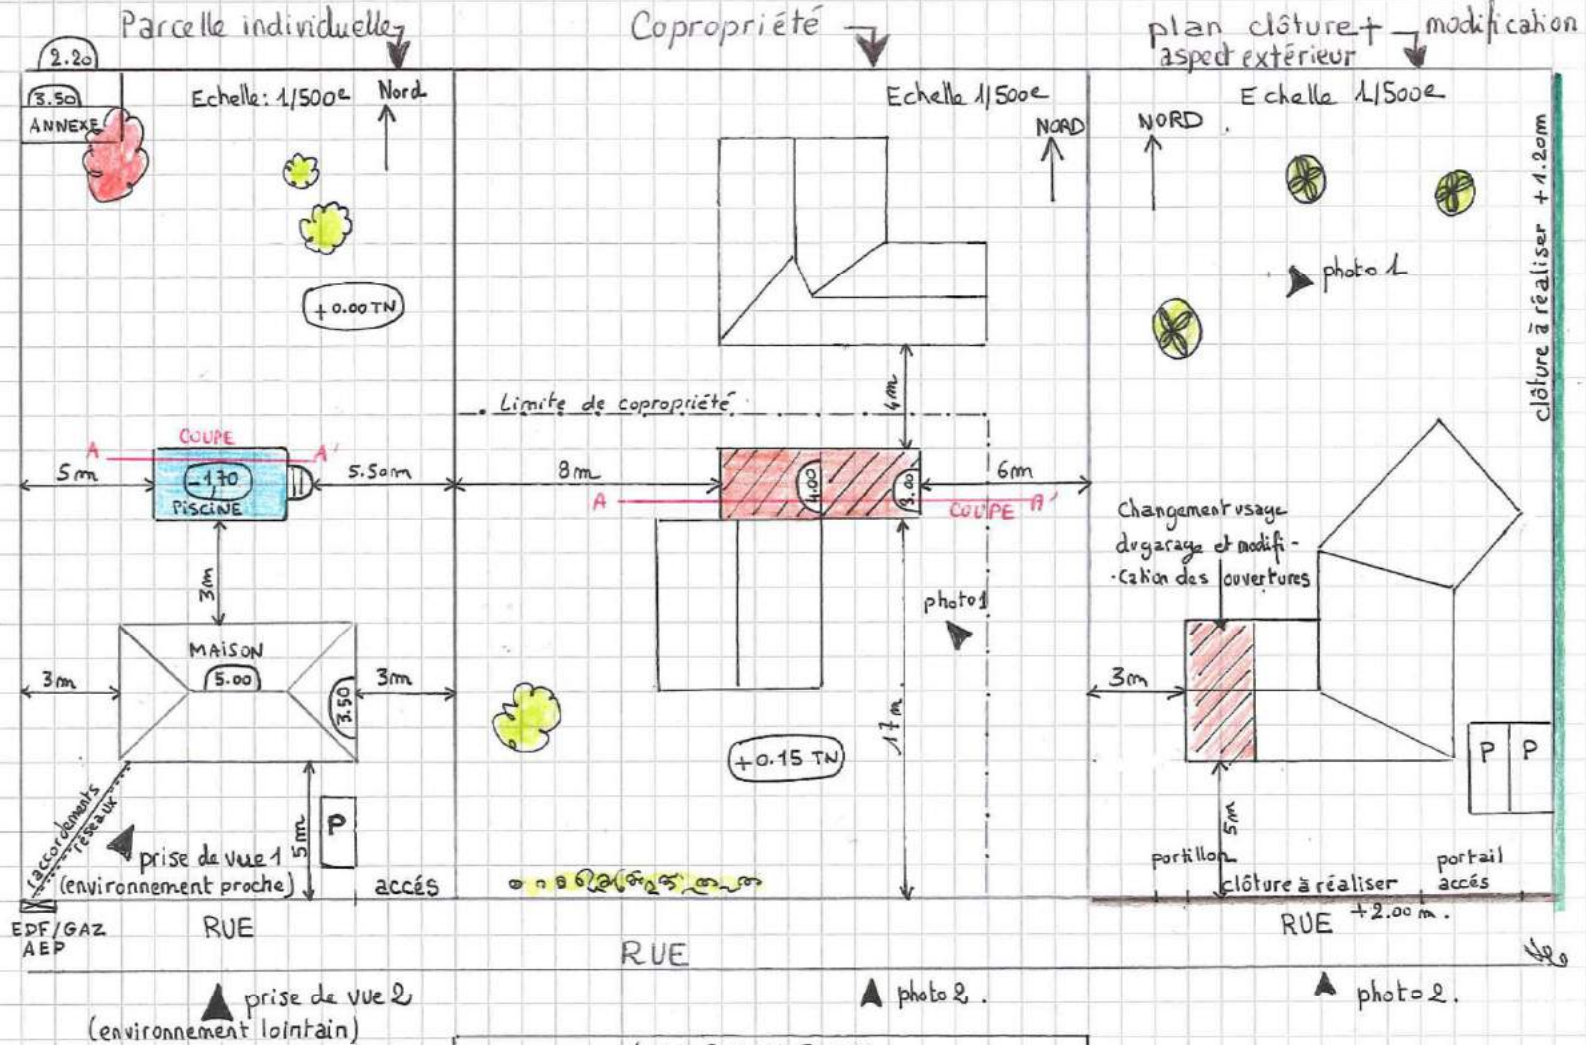 Parcelle individuelle
2.20
3.50
ANNEXE
Echelle: 1/500e
Nord
+0.00 TN
COUPE
A
A'
5m
-1,70
PISCINE
5.50m
3m
MAISON
5.00
3m
3.50
3m
raccordements
réseaux
5m
P
prise de vue 1
(environnement proche)
accés
EDF/GAZ
AEP
RUE
prise de vue 2
(environnement lointain)
Copropriété
Echelle 1/500e
NORD
4m
Limite de copropriété
8m
4.00
3.00
6m
A
COUPE A'
photo1
17m
+0.15 TN
RUE
photo 2.
plan clôture + modification
aspect extérieur
Echelle 1/500e
NORD
clôture à réaliser +1.20m
photo 1
Changement usage
du garage et modifi-
-cation des ouvertures
3m
P P
5m
portillon
portail
clôture à réaliser
accés
RUE
+2.00 m.
photo 2.